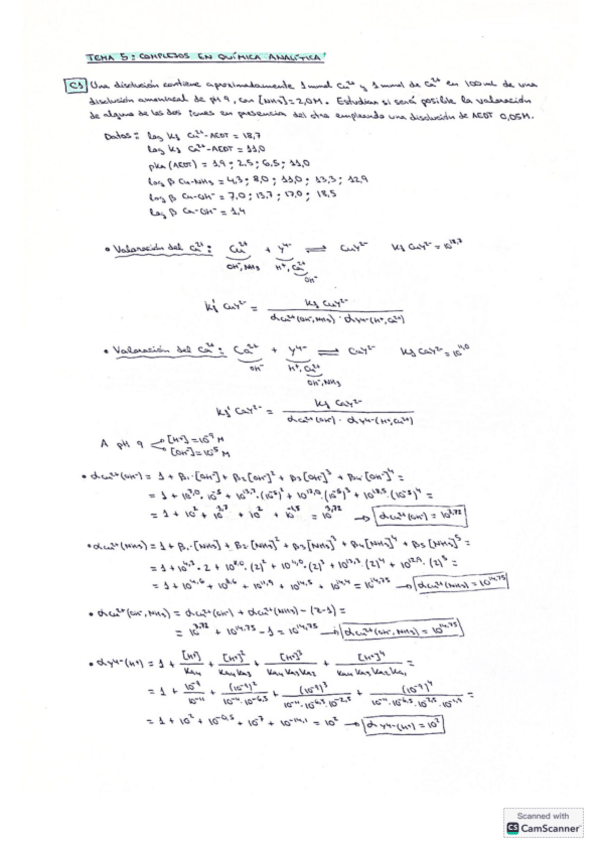 TEMA 5: COMPLEJOS EN QUÍMICA ANALÍTICA
C1 Una disolución contiene aproximadamente 1 mmol Cu²⁺ y 1 mmol de Ca²⁺ en 100 mL de una
disolución amoniacal de pH 9, con [NH₃] = 2,0 M. Estudiar si será posible la valoración
de alguno de los dos iones en presencia del otro empleando una disolución de AEDT 0,05M.
Datos: log Kf Cu²⁺-AEDT = 18,7
log Kf Ca²⁺-AEDT = 11,0
pKa (AEDT) = 1,9; 2,5; 6,5; 11,0
log β Cu-NH₃ = 4,3; 8,0; 11,0; 13,3; 12,9
log β Cu-OH⁻ = 7,0; 13,7; 17,0; 18,5
log β Ca-OH⁻ = 1,4
• Valoración del Cu²⁺: Cu²⁺ + Y⁴⁻ ⇌ CuY²⁻ Kf CuY²⁻ = 10¹⁸,⁷
OH⁻, NH₃ H⁺, Ca²⁺
OH⁻
Kf' CuY²⁻ = Kf CuY²⁻ / αCu²⁺(OH⁻, NH₃) · αY⁴⁻(H⁺, Ca²⁺)
• Valoración del Ca²⁺: Ca²⁺ + Y⁴⁻ ⇌ CaY²⁻ Kf CaY²⁻ = 10¹¹,⁰
OH⁻ H⁺, Cu²⁺
OH⁻, NH₃
Kf' CaY²⁻ = Kf CaY²⁻ / αCa²⁺(OH⁻) · αY⁴⁻(H⁺, Cu²⁺)
A pH 9 [H⁺] = 10⁻⁹ M
[OH⁻] = 10⁻⁵ M
• αCu²⁺(OH⁻) = 1 + β₁·[OH⁻] + β₂[OH⁻]² + β₃[OH⁻]³ + β₄[OH⁻]⁴ =
= 1 + 10⁷,⁰ · 10⁻⁵ + 10¹³,⁷ · (10⁻⁵)² + 10¹⁷,⁰ · (10⁻⁵)³ + 10¹⁸,⁵ · (10⁻⁵)⁴ =
= 1 + 10² + 10³,⁷ + 10² + 10⁻¹,⁵ = 10³,⁷² → αCu²⁺(OH⁻) = 10³,⁷²
• αCu²⁺(NH₃) = 1 + β₁·[NH₃] + β₂[NH₃]² + β₃[NH₃]³ + β₄[NH₃]⁴ + β₅[NH₃]⁵ =
= 1 + 10⁴,³ · 2 + 10⁸,⁰ · (2)² + 10¹¹,⁰ · (2)³ + 10¹³,³ · (2)⁴ + 10¹²,⁹ · (2)⁵ =
= 1 + 10⁴,⁶ + 10⁸,⁶ + 10¹¹,⁹ + 10¹⁴,⁵ + 10¹⁴,⁴ = 10¹⁴,⁷⁵ → αCu²⁺(NH₃) = 10¹⁴,⁷⁵
• αCu²⁺(OH⁻, NH₃) = αCu²⁺(OH⁻) + αCu²⁺(NH₃) - (2-1) =
= 10³,⁷² + 10¹⁴,⁷⁵ - 1 = 10¹⁴,⁷⁵ → αCu²⁺(OH⁻, NH₃) = 10¹⁴,⁷⁵
• αY⁴⁻(H⁺) = 1 + [H⁺]/Ka₄ + [H⁺]²/Ka₄ Ka₃ + [H⁺]³/Ka₄ Ka₃ Ka₂ + [H⁺]⁴/Ka₄ Ka₃ Ka₂ Ka₁ =
= 1 + 10⁻⁹/10⁻¹¹ + (10⁻⁹)²/10⁻¹¹·10⁻⁶,⁵ + (10⁻⁹)³/10⁻¹¹·10⁻⁶,⁵·10⁻²,⁵ + (10⁻⁹)⁴/10⁻¹¹·10⁻⁶,⁵·10⁻²,⁵·10⁻¹,⁹ =
= 1 + 10² + 10⁻⁰,⁵ + 10⁻⁷ + 10⁻¹⁴,¹ = 10² → αY⁴⁻(H⁺) = 10²
Scanned with
CS CamScanner